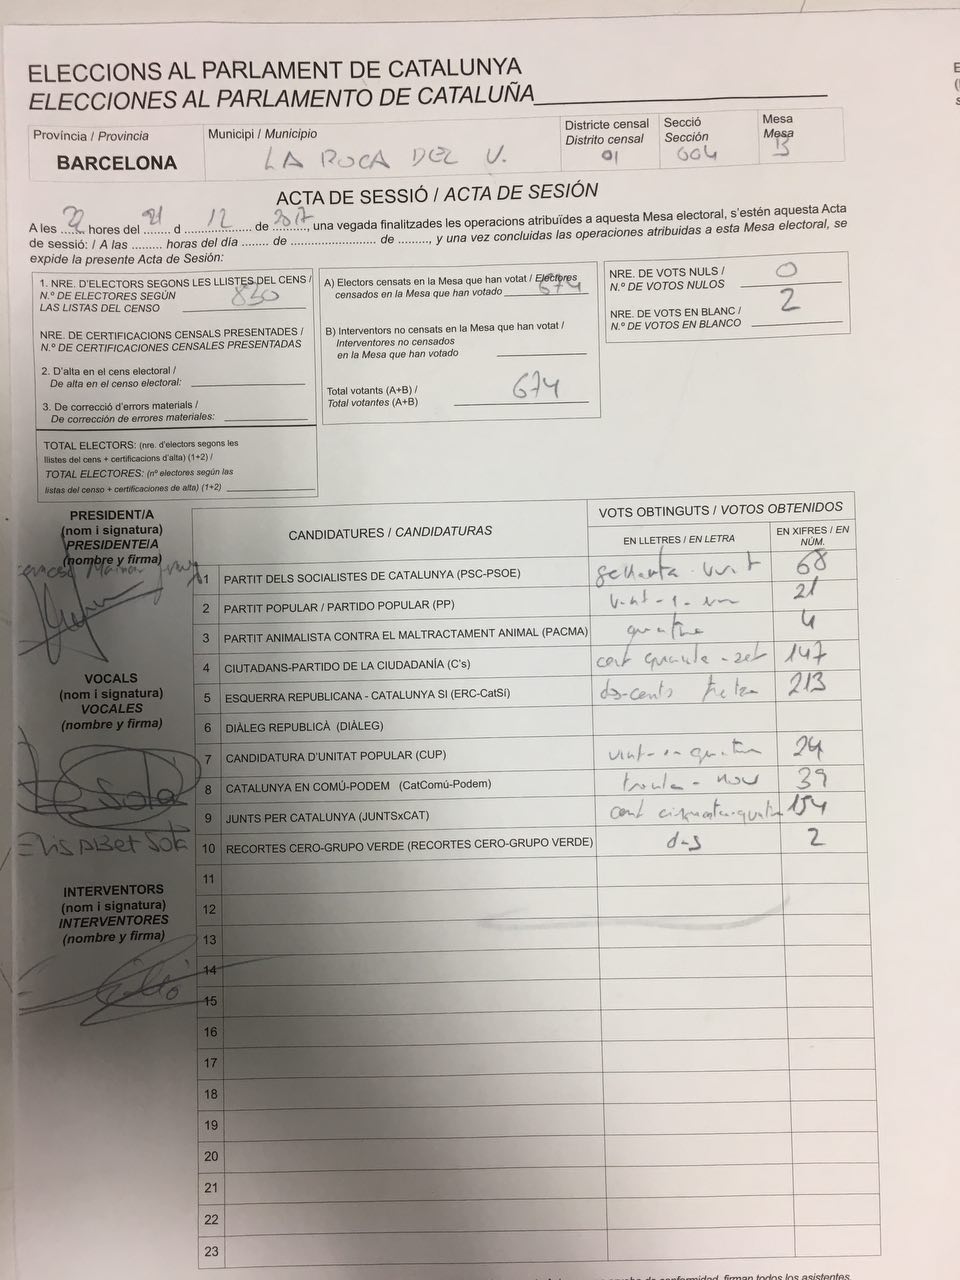 ELECCIONS AL PARLAMENT DE CATALUNYA
ELECCIONES AL PARLAMENTO DE CATALUÑA
Província / Provincia
BARCELONA
Municipi / Municipio
LA ROCA DEL V.
Districte censal
Distrito censal
01
Secció
Sección
004
Mesa
Mesa
B
ACTA DE SESSIÓ / ACTA DE SESIÓN
A les 22 hores del 21 d 12 de 2017, una vegada finalitzades les operacions atribuïdes a aquesta Mesa electoral, s'estén aquesta Acta
de sessió: / A las ......... horas del día ....... de ........................ de ........, y una vez concluidas las operaciones atribuidas a esta Mesa electoral, se
expide la presente Acta de Sesión:
1. NRE. D'ELECTORS SEGONS LES LLISTES DEL CENS /
N.º DE ELECTORES SEGÚN
LAS LISTAS DEL CENSO
830
NRE. DE CERTIFICACIONS CENSALS PRESENTADES /
N.º DE CERTIFICACIONES CENSALES PRESENTADAS
2. D'alta en el cens electoral /
De alta en el censo electoral:
3. De correcció d'errors materials /
De corrección de errores materiales:
TOTAL ELECTORS: (nre. d'electors segons les
llistes del cens + certificacions d'alta) (1+2) /
TOTAL ELECTORES: (nº electores según las
listas del censo + certificaciones de alta) (1+2)
A) Electors censats en la Mesa que han votat / Electores
censados en la Mesa que han votado 674
B) Interventors no censats en la Mesa que han votat /
Interventores no censados
en la Mesa que han votado
Total votants (A+B) /
Total votantes (A+B)
674
NRE. DE VOTS NULS /
N.º DE VOTOS NULOS
0
NRE. DE VOTS EN BLANC /
N.º DE VOTOS EN BLANCO
2
PRESIDENT/A
(nom i signatura)
PRESIDENTE/A
(nombre y firma)
VOCALS
(nom i signatura)
VOCALES
(nombre y firma)
Sota
Elisabet Sota
INTERVENTORS
(nom i signatura)
INTERVENTORES
(nombre y firma)
CANDIDATURES / CANDIDATURAS
VOTS OBTINGUTS / VOTOS OBTENIDOS
EN LLETRES / EN LETRA
EN XIFRES / EN
NÚM.
1 PARTIT DELS SOCIALISTES DE CATALUNYA (PSC-PSOE) seixanta-vuit 68
2 PARTIT POPULAR / PARTIDO POPULAR (PP) vint-i-un 21
3 PARTIT ANIMALISTA CONTRA EL MALTRACTAMENT ANIMAL (PACMA) quatre 4
4 CIUTADANS-PARTIDO DE LA CIUDADANÍA (C's) cent quaranta-set 147
5 ESQUERRA REPUBLICANA - CATALUNYA SI (ERC-CatSí) dos-cents tretze 213
6 DIÀLEG REPUBLICÀ (DIÀLEG)
7 CANDIDATURA D'UNITAT POPULAR (CUP) vint-en quatre 24
8 CATALUNYA EN COMÚ-PODEM (CatComú-Podem) trenta-nou 39
9 JUNTS PER CATALUNYA (JUNTSxCAT) cent cinquanta-quatre 154
10 RECORTES CERO-GRUPO VERDE (RECORTES CERO-GRUPO VERDE) dos 2
11
12
13
14
15
16
17
18
19
20
21
22
23
de conformidad, firman todos los asistentes.